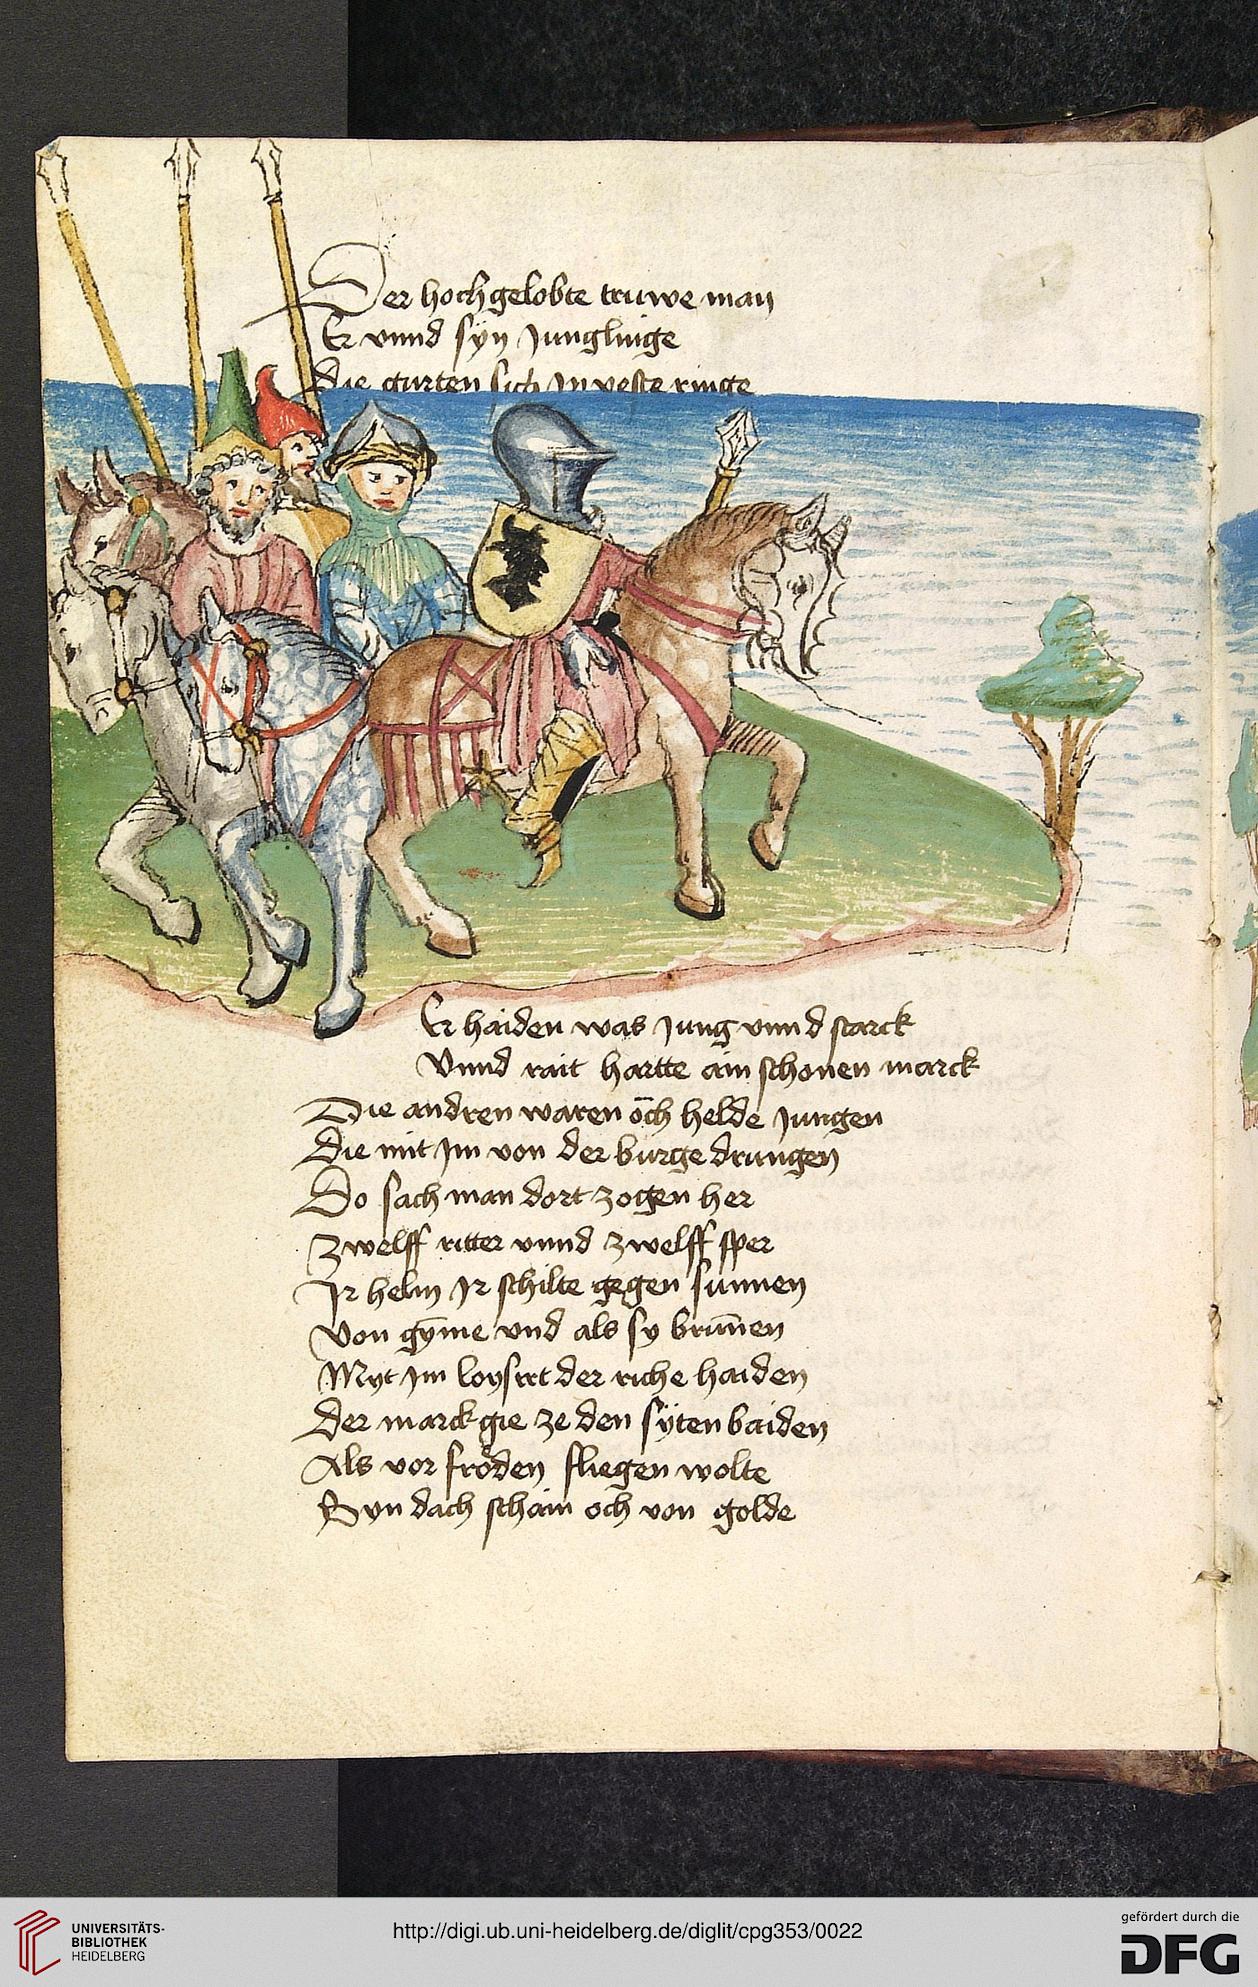 Der hochgelobte truwe man
Er vnnd syn Junglinge
Die gurten sich Jn veste ringe
Er haiden was Jung vnnd starck
Vnnd rait hartte ain schonen marck
Die andren waren och helde Jungen
Die mit Jm von der burge drungen
Do sach man dort zogen her
Zwelff ritter vnnd zwelff sper
Jr helm Jr schilte gegen sunnen
Von gyme vnd als sy brunnen
Myt Jm loysirt der riche haiden
Der marck gie ze den syten baiden
Als vor fröden fliegen wolte
Syn dach schain och von golde
UNIVERSITÄTS-
BIBLIOTHEK
HEIDELBERG
http://digi.ub.uni-heidelberg.de/diglit/cpg353/0022
gefördert durch die
DFG